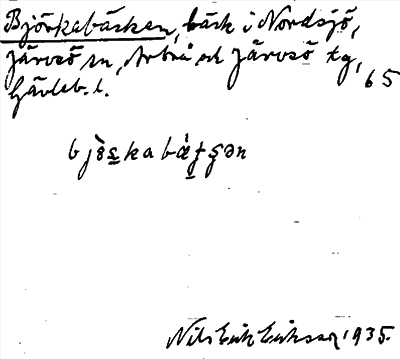 Björkabäcken, bäck i Nordsjö,
Järvsö sn, Arbrå och Järvsö tg,
65
Gävleb. l.
bjö̀s̲kabæ̀t̲ʂən
Nils Erik Eriksson 1935.